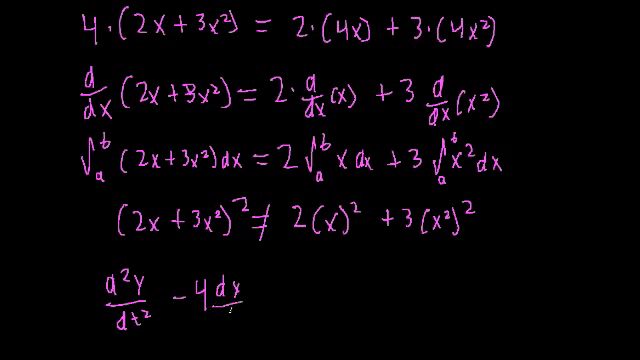 4·(2x + 3x²) = 2·(4x) + 3·(4x²)
d/dx (2x + 3x²) = 2·d/dx (x) + 3 d/dx (x²)
∫ₐᵇ (2x + 3x²) dx = 2 ∫ₐᵇ x dx + 3 ∫ₐᵇ x² dx
(2x + 3x²)² ≠ 2(x)² + 3(x²)²
d²y/dt² - 4 dy/